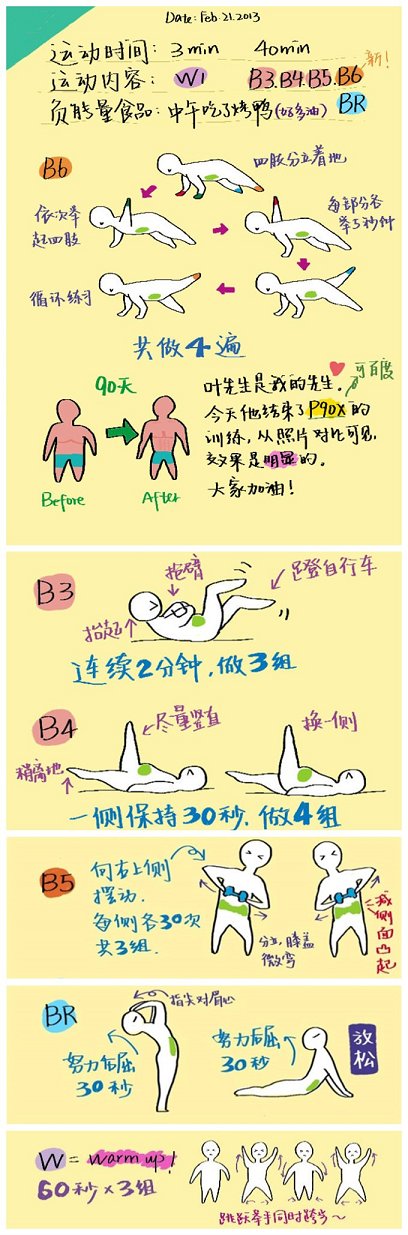 Date: Feb. 21. 2013
运动时间: 3min 40min
运动内容: W1 B3.B4.B5.B6 新!
负能量食品: 中午吃了烤鸭(好多油) BR
B6
四肢分立着地
依次举
起四肢
每部分各
举5秒钟
循环练习
共做4遍
90天
Before
After
叶先生是我的先生。
可百度
今天他结束了P90X的
训练,从照片对比可见,
效果是明显的。
大家加油!
B3
抱臂
蹬自行车
抬起
连续2分钟,做3组
B4
尽量竖直
换一侧
稍离地
一侧保持30秒.做4组
B5
向右上侧
摆动.
每侧各30次
共3组.
分立,膝盖
微弯
减侧面凸起
BR
指尖对眉心
努力后屈
30秒
努力后屈
30秒
放松
W = warm up!
60秒×3组
跳跃举手同时跨步~